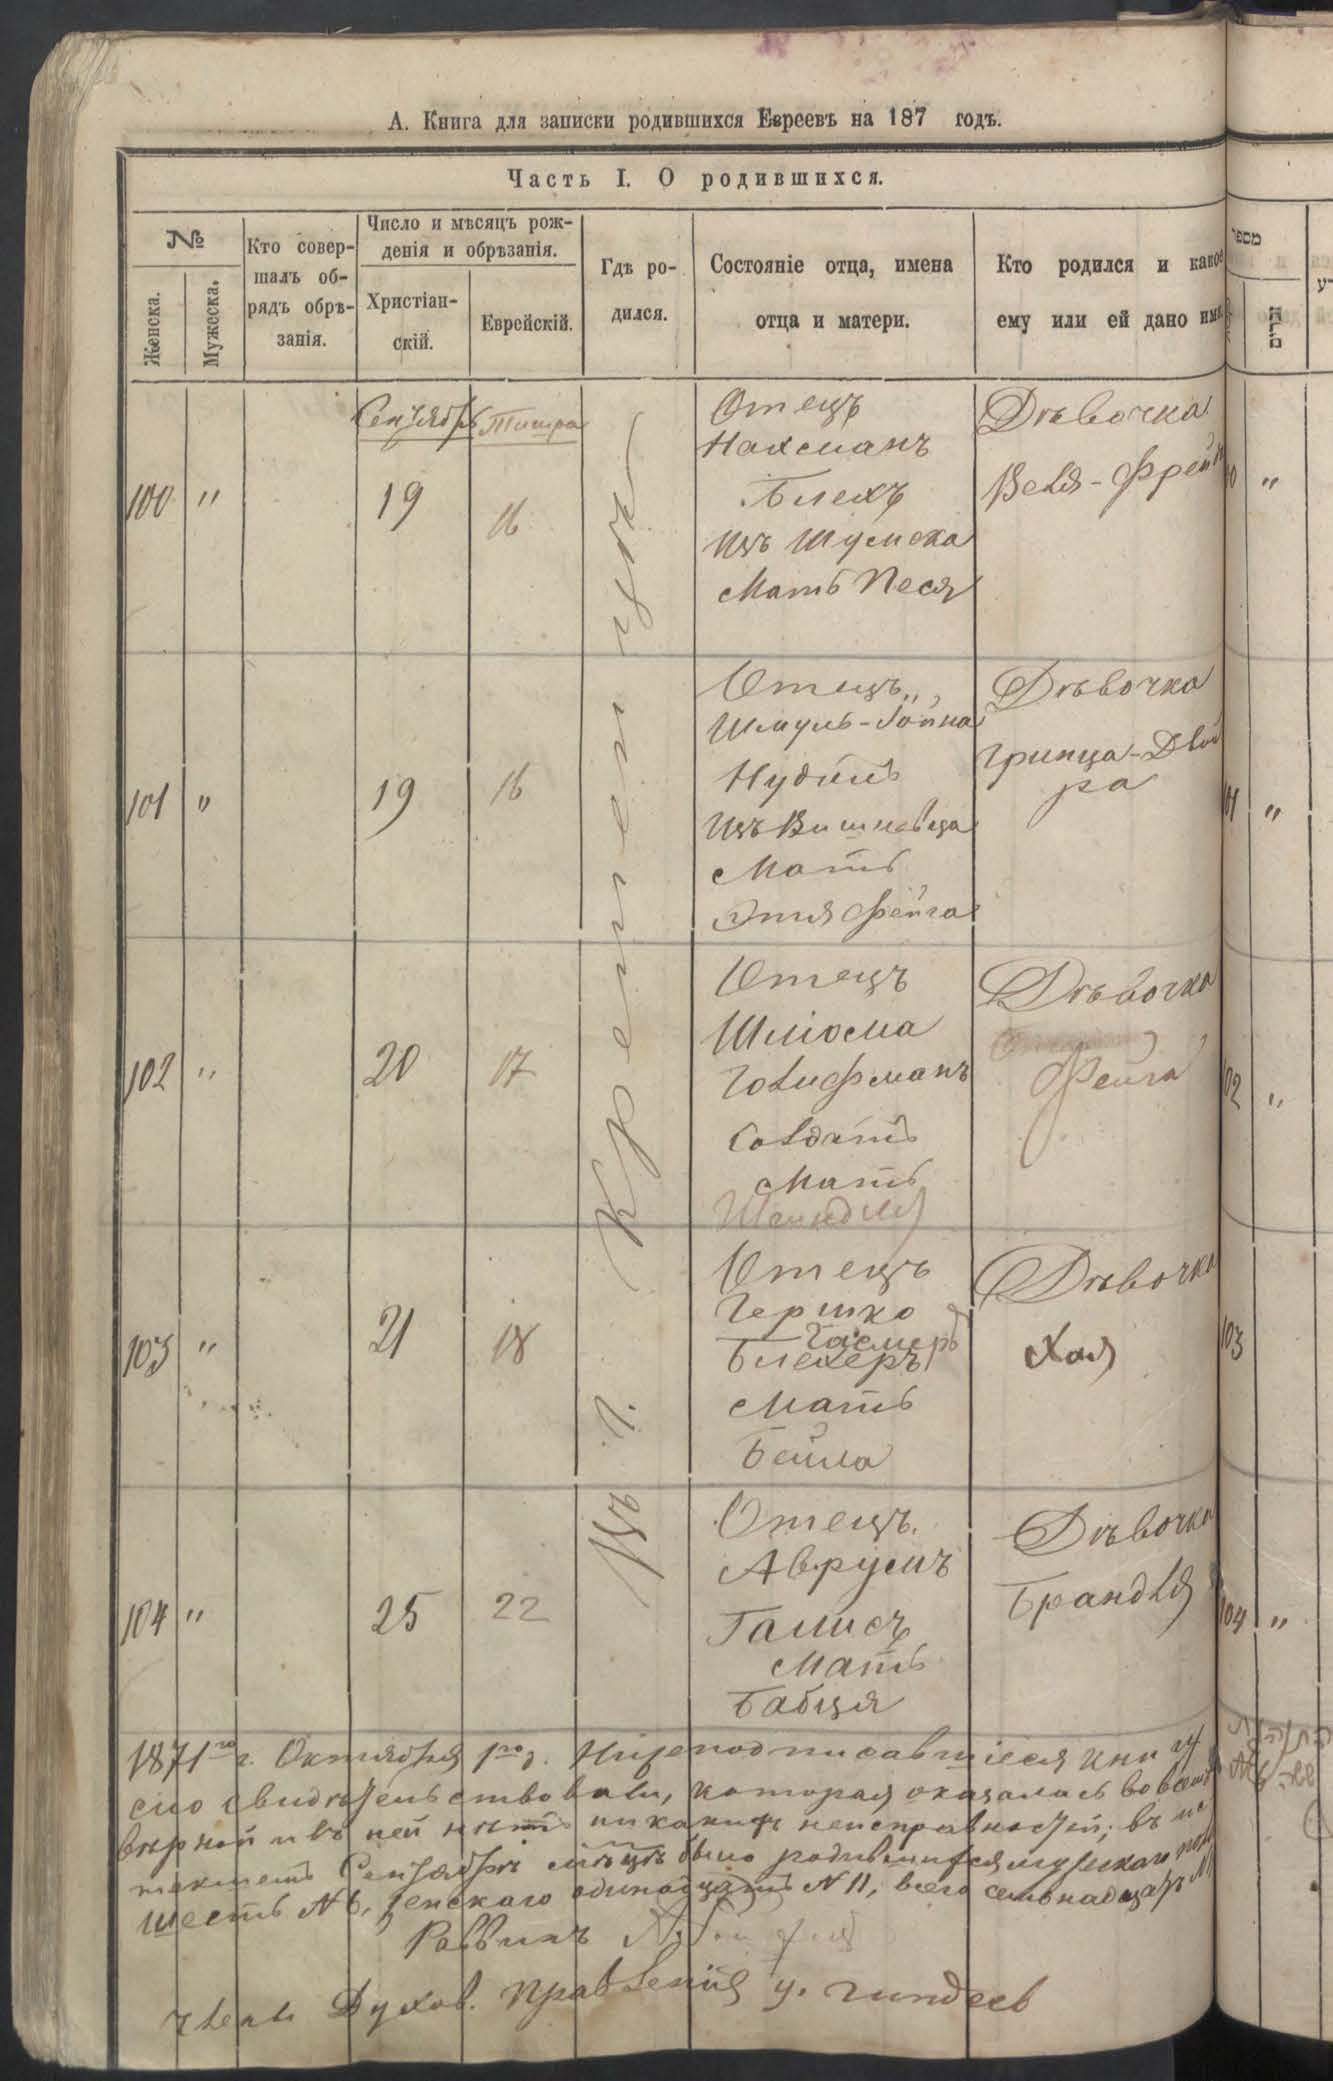 А. Книга для записки родившихся Евреевъ на 187 годъ.
Часть I. О родившихся.
№
Женска.
Мужеска.
Кто совер-
шалъ об-
рядъ обрѣ-
занія.
Число и мѣсяцъ рож-
денія и обрѣзанія.
Христіан-
скій.
Еврейскій.
Гдѣ ро-
дился.
Состояніе отца, имена
отца и матери.
Кто родился и какое
ему или ей дано имя.
Въ г. Кременцѣ
Сентябрь Тишра
100 " 19 16
Отецъ
Нахманъ
Блехъ
изъ Шумска
Мать Песя
Дѣвочка
Веля-Фрей
101 " 19 16
Отецъ
Шмуль-Іойна
Нудель
изъ Вишневца
Мать
Этя Фейга
Дѣвочка
Грипца-Двой
ра
102 " 20 17
Отецъ
Шліома
Голифманъ
Солдатъ
Мать
Шейндля
Дѣвочка
Фейга
103 " 21 18
Отецъ
Гершко
Блехеръ
Мать
Бейла
Дѣвочка
Хая
104 " 25 22
Отецъ
Аврумъ
Галисъ
Мать
Бабця
Дѣвочка
Брандля
1871го г. Октября 1го д. Нижеподписавшіеся книгу
сію свидѣтельствовали, которая оказалась во всемъ
вѣрной и въ ней нѣтъ никакихъ неисправностей; въ
текшемъ Сентябрѣ мѣцѣ было родившихся мужскаго
шесть № 6, женскаго одинадцать № 11, всего семьнадцать №
Раввинъ
Членъ Духов. Правленія У. Гиндесъ
מספר
100 "
101 "
102 "
103
104 "